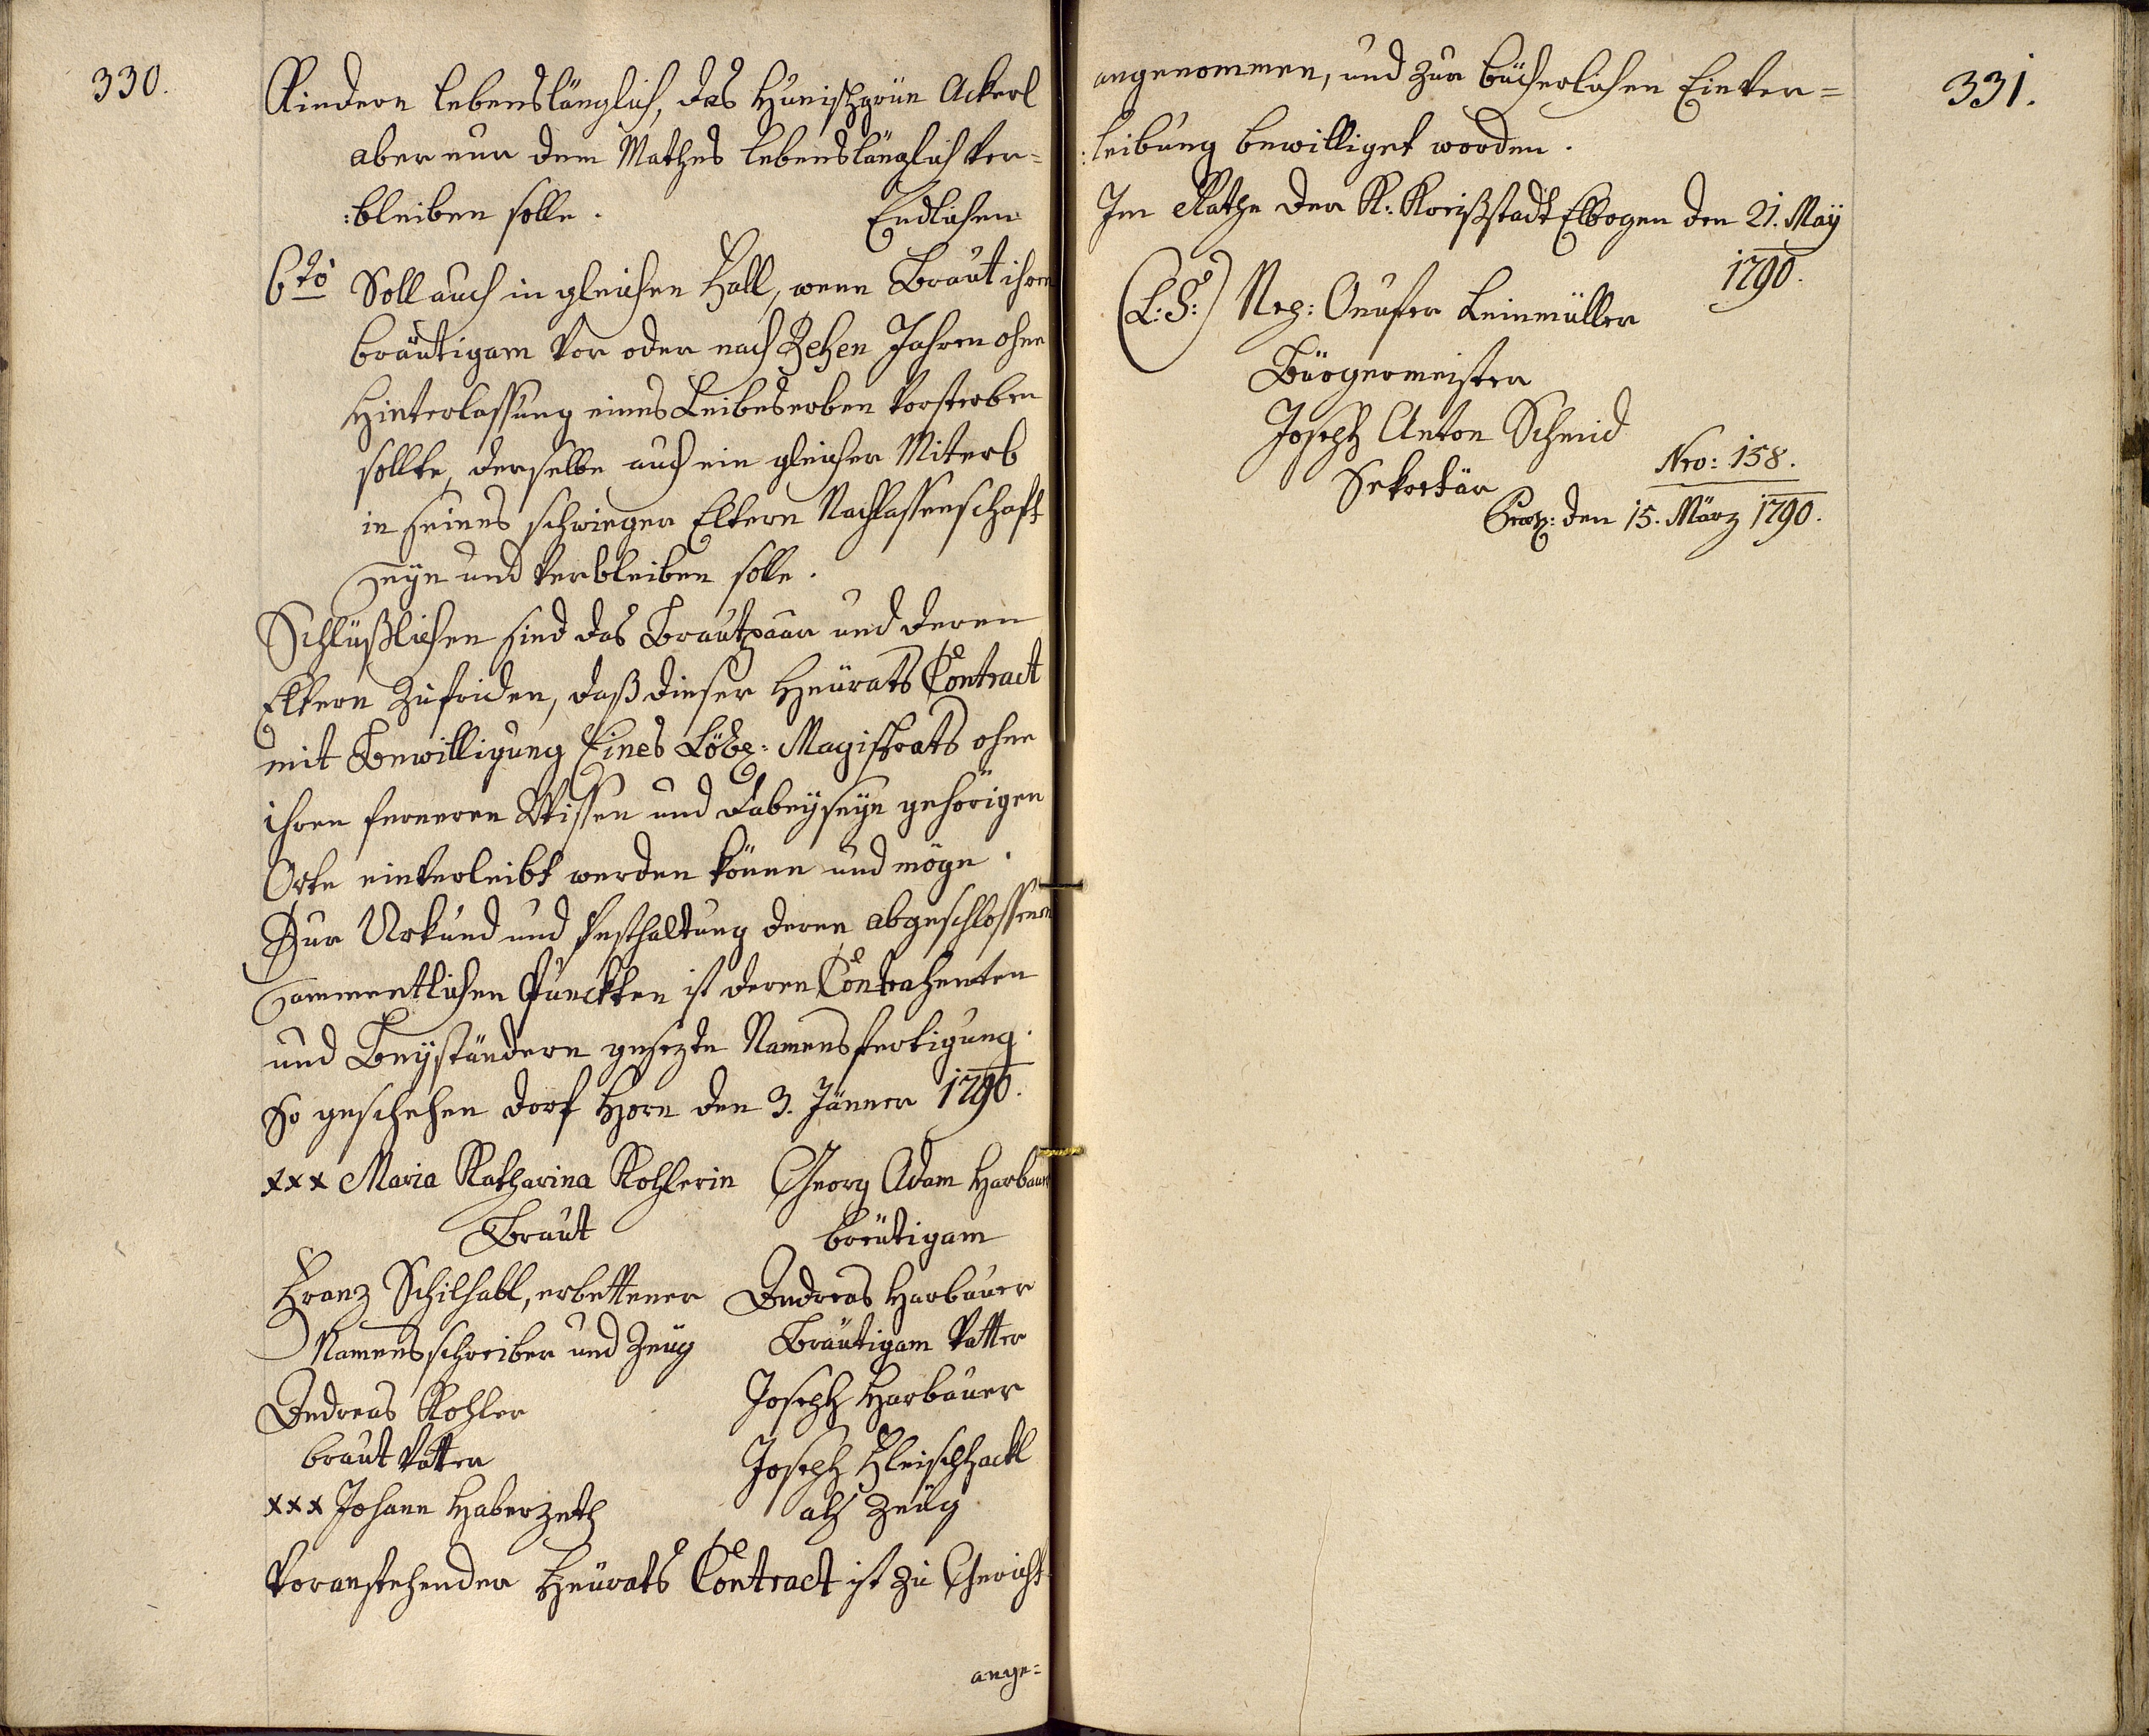 330.
Kindern lebenslänglich, das Hünischgrün Ackerl
aber nur dem Mathes lebenslänglich ver=
:bleiben solle. Endlichen
6to Soll auch in gleichen Fall, wenn Braut ihrem
bräutigam vor oder nach Zehen Jahren ohne
Hinterlassung eines Leibeserben vorsterben
sollte, derselbe auch ein gleicher Miterb
in seines schwieger Eltern Nachlassenschaft
seyn und verbleiben solle.
Schlüßlichen sind das Brautpaar und deren
Eltern zufriden, daß dieser Heürats Contract
mit Bewilligung Eines Löbl: Magistrats ohne
ihren ferneren Wissen und Dabeyseyn gehörigen
Orte einverleibt werden könne und möge.
Zur Urkund und Vesthaltung deren abgeschlossenen
sammentlichen Punckten ist deren Contrahenten
und Beyständern gesezte Namensfertigung.
So geschehen Dorf Horn den 3. Jänner 1790.
xxx Maria Katharina Kohlerin Georg Adam Harbauer
Braut breütigam
Franz Schilhabl, erbettener Andreas Harbauer
Namensschreiber und Zeug Bräutigam Vatter
Andreas Kohler Joseph Harbauer
braut Vatter Joseph Fleischhackl
xxx Johann Haberzeth als Zeüg
Voranstehender Heürats Contract ist zu Gericht
ange=
331.
angenommen, und zur bücherlichen Einver=
:leibung bewilliget worden.
Im Rathe der K: Kreißstadt Elbogen den 21. May
1790.
(L:S:) Nep: Onufer Leinmüller
Bürgermeister
Joseph Anton Schmid
Sekretär Nro: 158.
Præs: den 15. März 1790.